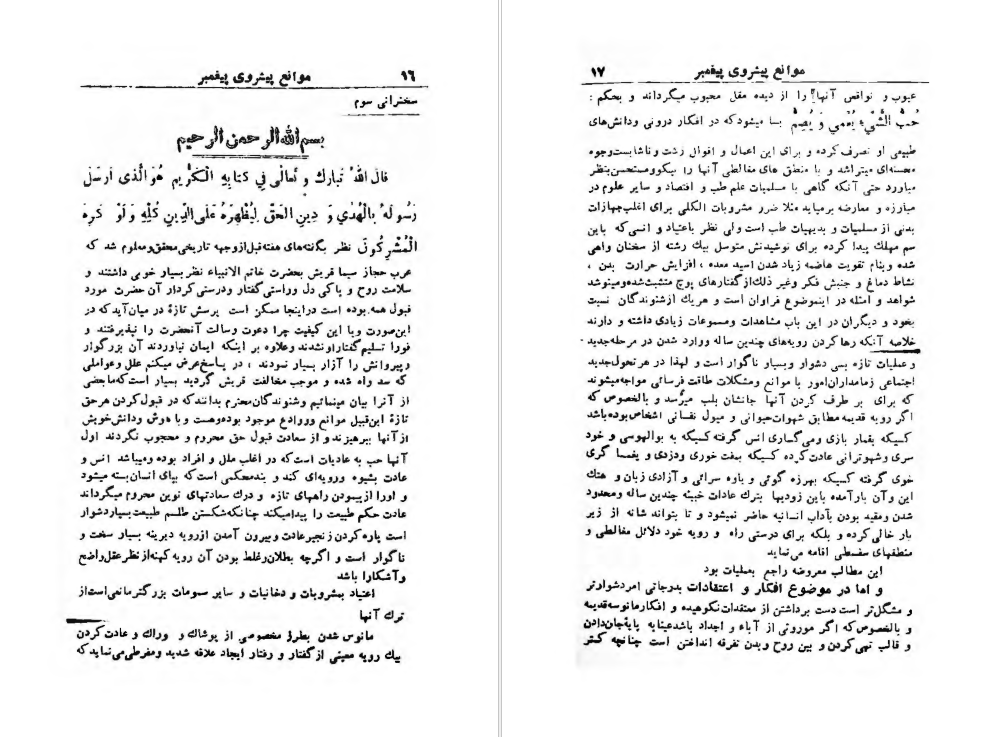 موانع پیشروی پیغمبر ۱۶
سخنرانی سوم
بسم الله الرحمن الرحیم
قال اللهُ تبارك و تعالی فی کتابه الکریم هُوَ الَّذی اَرسَلَ
رَسُولَهُ بِالهُدی وَ دینِ الحَقِّ لِیُظهِرَهُ عَلَی الدّینِ کُلِّهِ وَ لَو کَرِهَ
المُشرِکُون نظر بگفته‌های هفته‌قبل‌ازوجهه تاریخی‌محقق‌ومعلوم شد که
عرب حجاز سیما قریش بحضرت خاتم الانبیاء نظر بسیار خوبی داشتند و
سلامت روح و پاکی دل وراستی‌گفتار ودرستی‌کردار آن حضرت مورد
قبول همه‌بوده است دراینجا ممکن است پرسش تازهٔ در میان‌آید که در
این‌صورت وبا این کیفیت چرا دعوت ورسالت آنحضرت را نپذیرفتند و
فورا تسلیم‌گفتاراونشدند وعلاوه بر اینکه ایمان نیاوردند آن بزرگوار
وپیروانش را آزار بسیار نمودند ، در پاسخ‌عرض میکنم علل وعواملی
که سد راه شده و موجب مخالفت قریش گردید بسیار است‌که‌مابعضی
از آنرا بیان مینمائیم وشنوندگان‌محترم بدانندکه در قبول‌کردن هرحق
تازهٔ این‌قبیل موانع وروادع موجود بوده‌وهست و با هوش ودانش‌خویش
از آنها بپرهیزند و از سعادت قبول حق محروم و محجوب نگردند اول
آنها حب به عادیات است‌که در اغلب ملل و افراد بوده ومیباشد انس و
عادت بشیوه ورویه‌ای کند و بندمحکمی است‌که بپای انسان‌بسته میشود
و اورا ازپیمودن راههای تازه و درك سعادتهای نوین محروم میگرداند
عادت حکم طبیعت را پیدامیکند چنانکه‌شکستن طلسم طبیعت‌بسیاردشوار
است پاره‌کردن زنجیرعادت وبیرون آمدن ازرویه دیرینه بسیار سخت و
ناگوار است و اگرچه بطلان‌وغلط بودن آن رویه کهنه‌ازنظرعقل‌واضح
وآشکارا باشد
اعتیاد بمشروبات و دخانیات و سایر سمومات بزرگتر‌مانعی‌است‌از
ترك آنها
مانوس شدن بطرزهٔ مخصوصی از پوشاك و وراك و عادت‌کردن
بیك رویه معینی ازگفتار و رفتار ایجاد علاقه شدید ومفرطی‌می‌نماید که
موانع پیشروی پیغمبر ۱۷
عیوب و نواقص آنها را از دیده عقل محبوب میگرداند و بحکم :
حُبُّ الشَّیءِ یُعمی وَ یُصِمُّ بسا میشودکه در افکار درونی ودانش‌های
طبیعی او تصرف‌کرده و برای این اعمال و اقوال زشت وناشایست‌وجوه
محسنه‌ای میتراشد و با منطق های مغالطی آنها را نیکوومستحسن‌بنظر
میاورد حتی آنکه گاهی با مسلمیات علم طب و اقتصاد و سایر علوم در
مبارزه و معارضه برمیاید مثلا ضرر مشروبات الکلی برای اغلب‌جهازات
بدنی از مسلمیات و بدیهیات طب است ولی نظر باعتیاد و انسی‌که باین
سم مهلك پیدا کرده برای نوشیدنش متوسل بیك رشته از سخنان واهی
شده وبنام تقویت هاضمه زیاد شدن اسید معده ، افزایش حرارت بدن ،
نشاط دماغ و جنبش فکر وغیر ذلك‌ازگفتارهای پوچ متشبث‌شده‌ومینوشد
شواهد و امثله در اینموضوع فراوان است و هریك ازشنوندگان نسبت
بخود و دیگران در این باب مشاهدات ومسموعات زیادی داشته و دارند
خلاصه آنکه رها کردن رویه‌های چندین ساله ووارد شدن در مرحله‌جدید
وعملیات تازه بسی دشوار وبسیار ناگوار است و لهذا در هرتحول‌جدید
اجتماعی زمامداران‌امور با موانع ومشکلات طاقت فرسائی مواجه‌میشوند
که برای بر طرف کردن آنها جانشان بلب میرسد و بالخصوص که
اگر رویه قدیمه مطابق شهوات‌حیوانی و میول نفسانی اشخاص‌بوده‌باشد
کسیکه بقمار بازی ومی‌گساری انس گرفته کسیکه به بوالهوسی و خود
سری وشهوترانی عادت‌کرده کسیکه بمفت خوری ودزدی و یغما گری
خوی گرفته کسیکه بهرزه گوئی و یاوه سرائی و آزادی زبان و هتك
این وآن بارآمده باین زودیها بترك عادات خبیثه چندین ساله ومحدود
شدن ومقید بودن بآداب انسانیه حاضر نمیشود و تا بتواند شانه از زیر
بار خالی‌کرده و بلکه برای درستی راه و رویه خود دلائل مغالطی و
منطقهای سفسطی اقامه می‌نماید
این مطالب معروضه راجع بعملیات بود
و اما در موضوع افکار و اعتقادات بدرجاتی امردشوارتر
و مشگل‌تر است دست برداشتن از معتقدات نکوهیده و افکارمانوسه‌قدیمه
و بالخصوص‌که اگر موروثی از آباء و اجداد باشد بمثابه جان‌دادن
و قالب تهی‌کردن و بین روح وبدن تفرقه انداختن است چنانچه کمتر